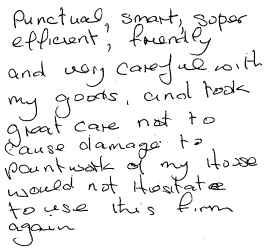 Punctual, smart, super
efficient, friendly
and very careful with
my goods, and took
great care not to
cause damage to
paintwork of my House
would not Hesitate
to use this firm
again